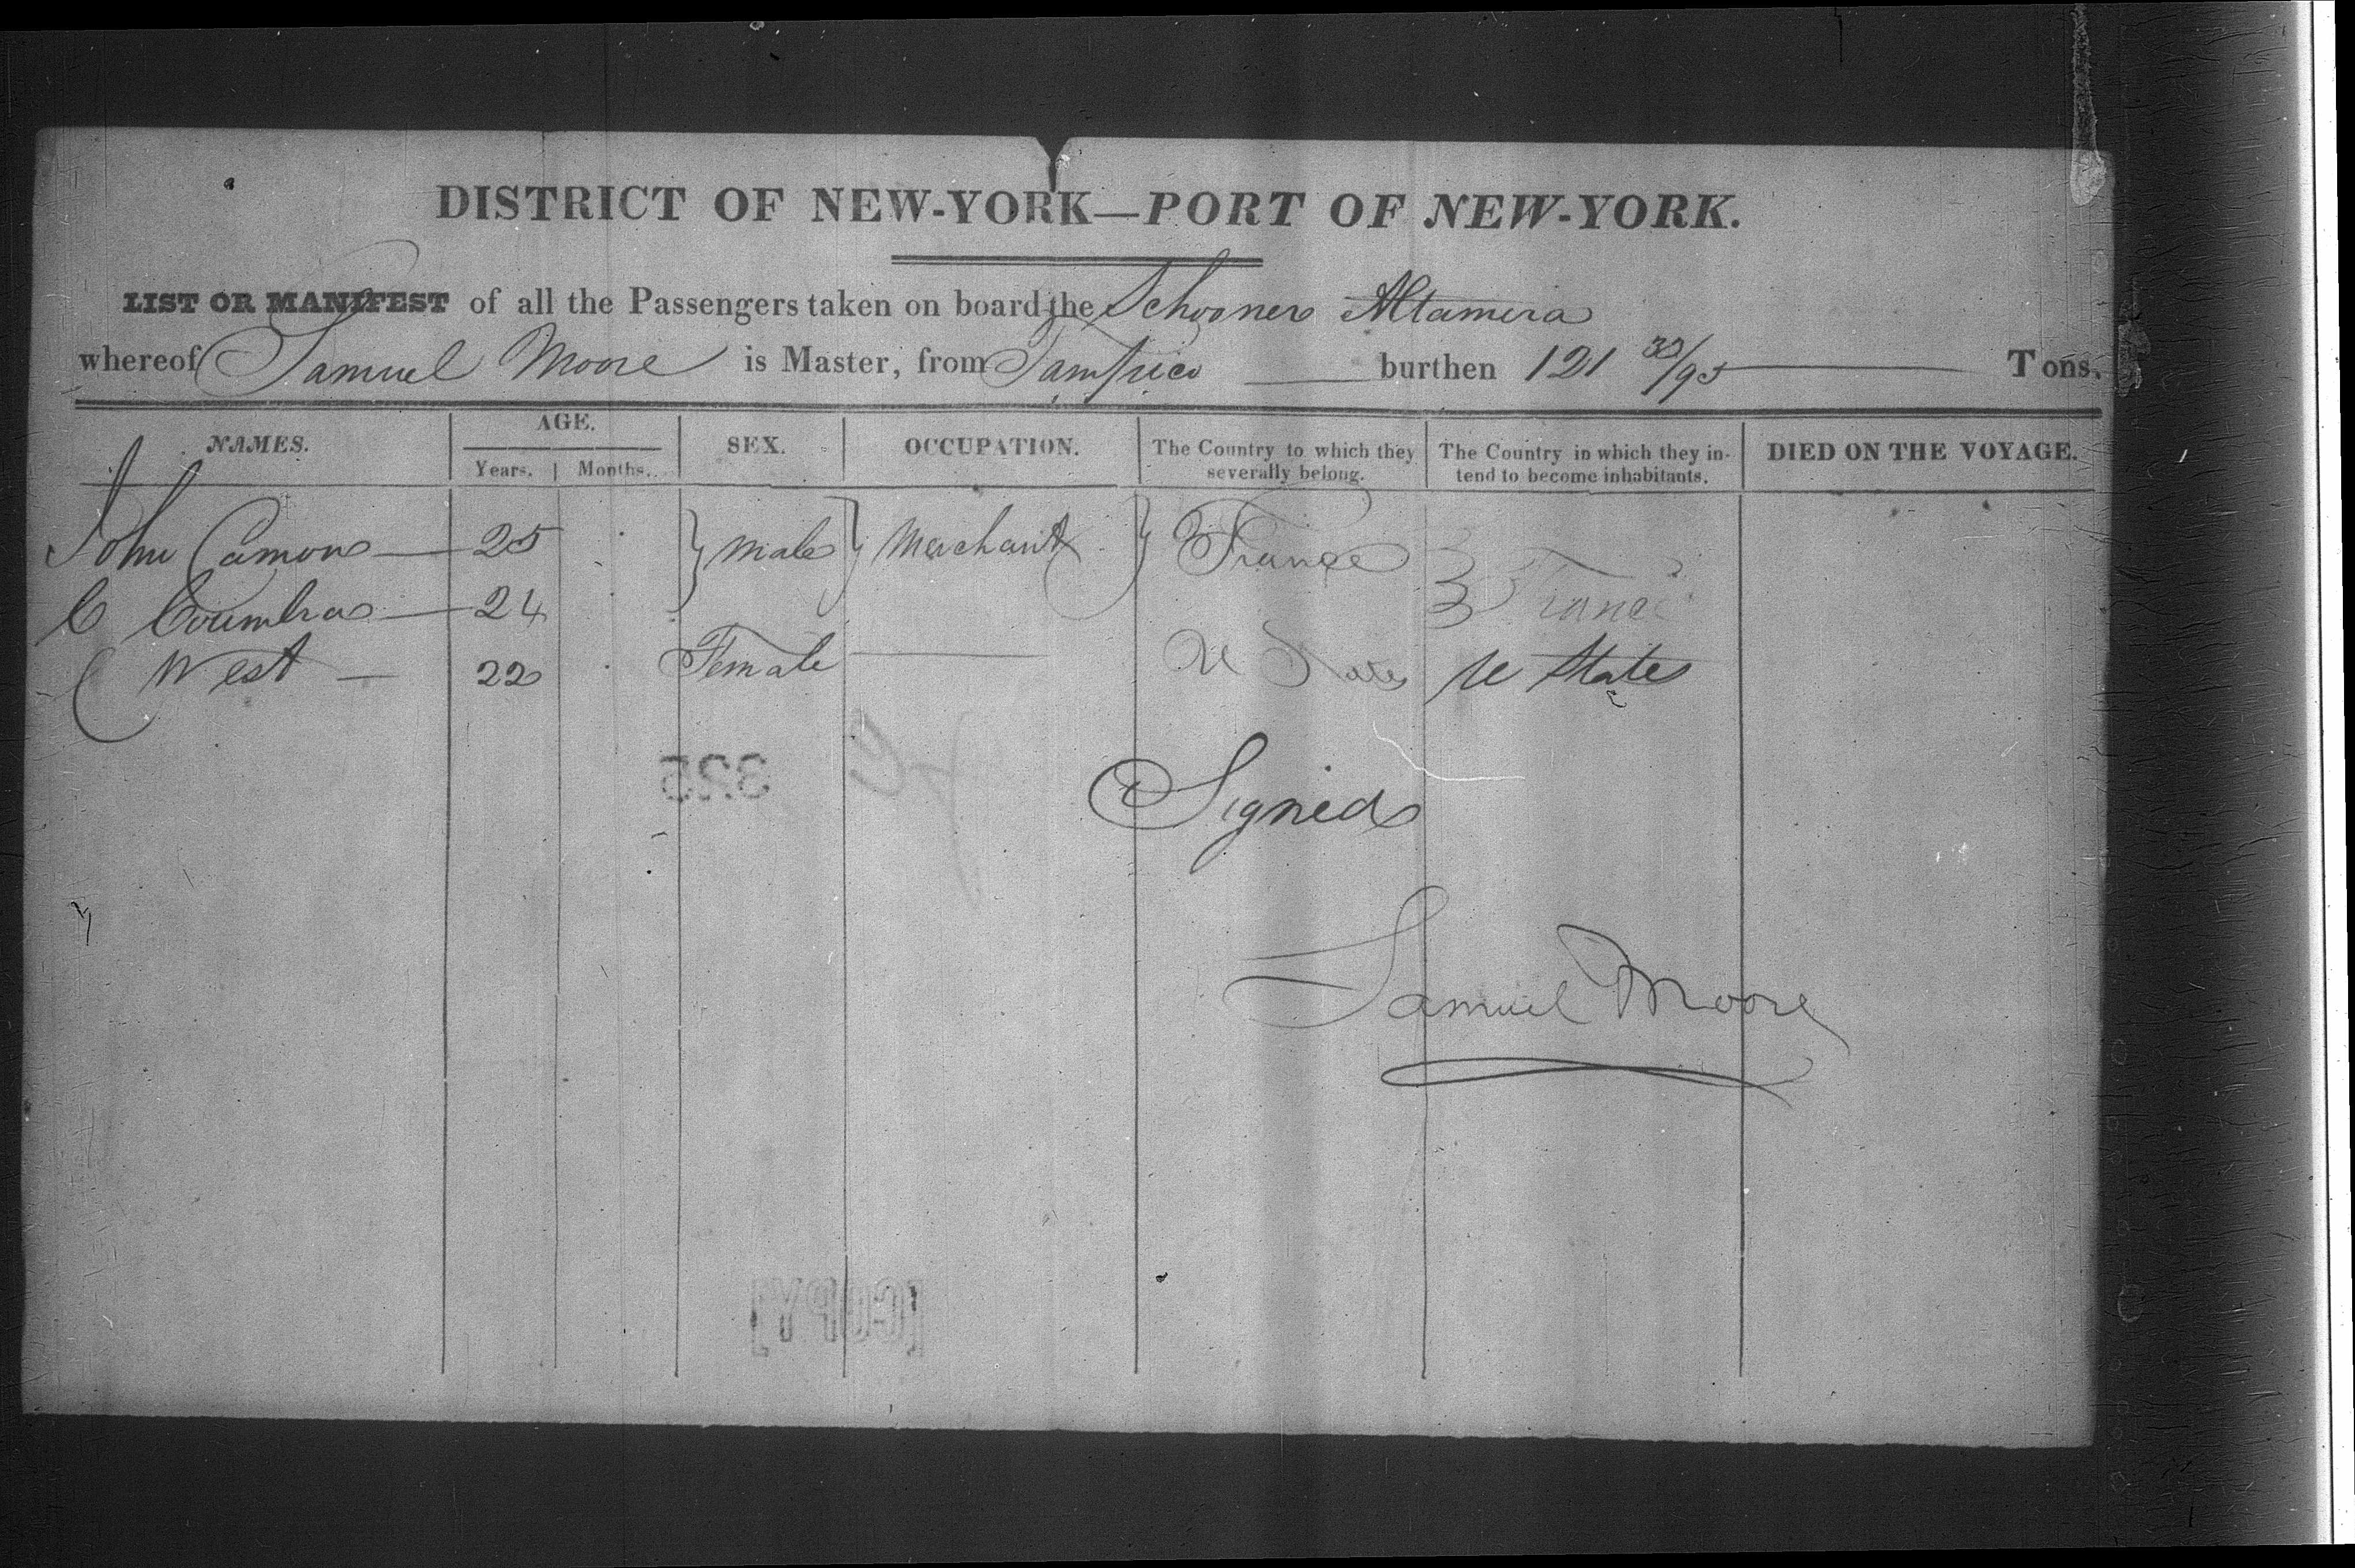 DISTRICT OF NEW-YORK—PORT OF NEW-YORK.
LIST OR MANIFEST of all the Passengers taken on board the Schooner Altamira
whereof Samuel Moore is Master, from Tampico burthen 121 32/95 Tons.
NAMES. AGE. Years. Months. SEX. OCCUPATION. The Country to which they severally belong. The Country in which they intend to become inhabitants. DIED ON THE VOYAGE.
John Camon 25 } male } Merchant } France
C 24 } France
C West 22 Female U States U States
325
Signed
Samuel Moore
[COPY]